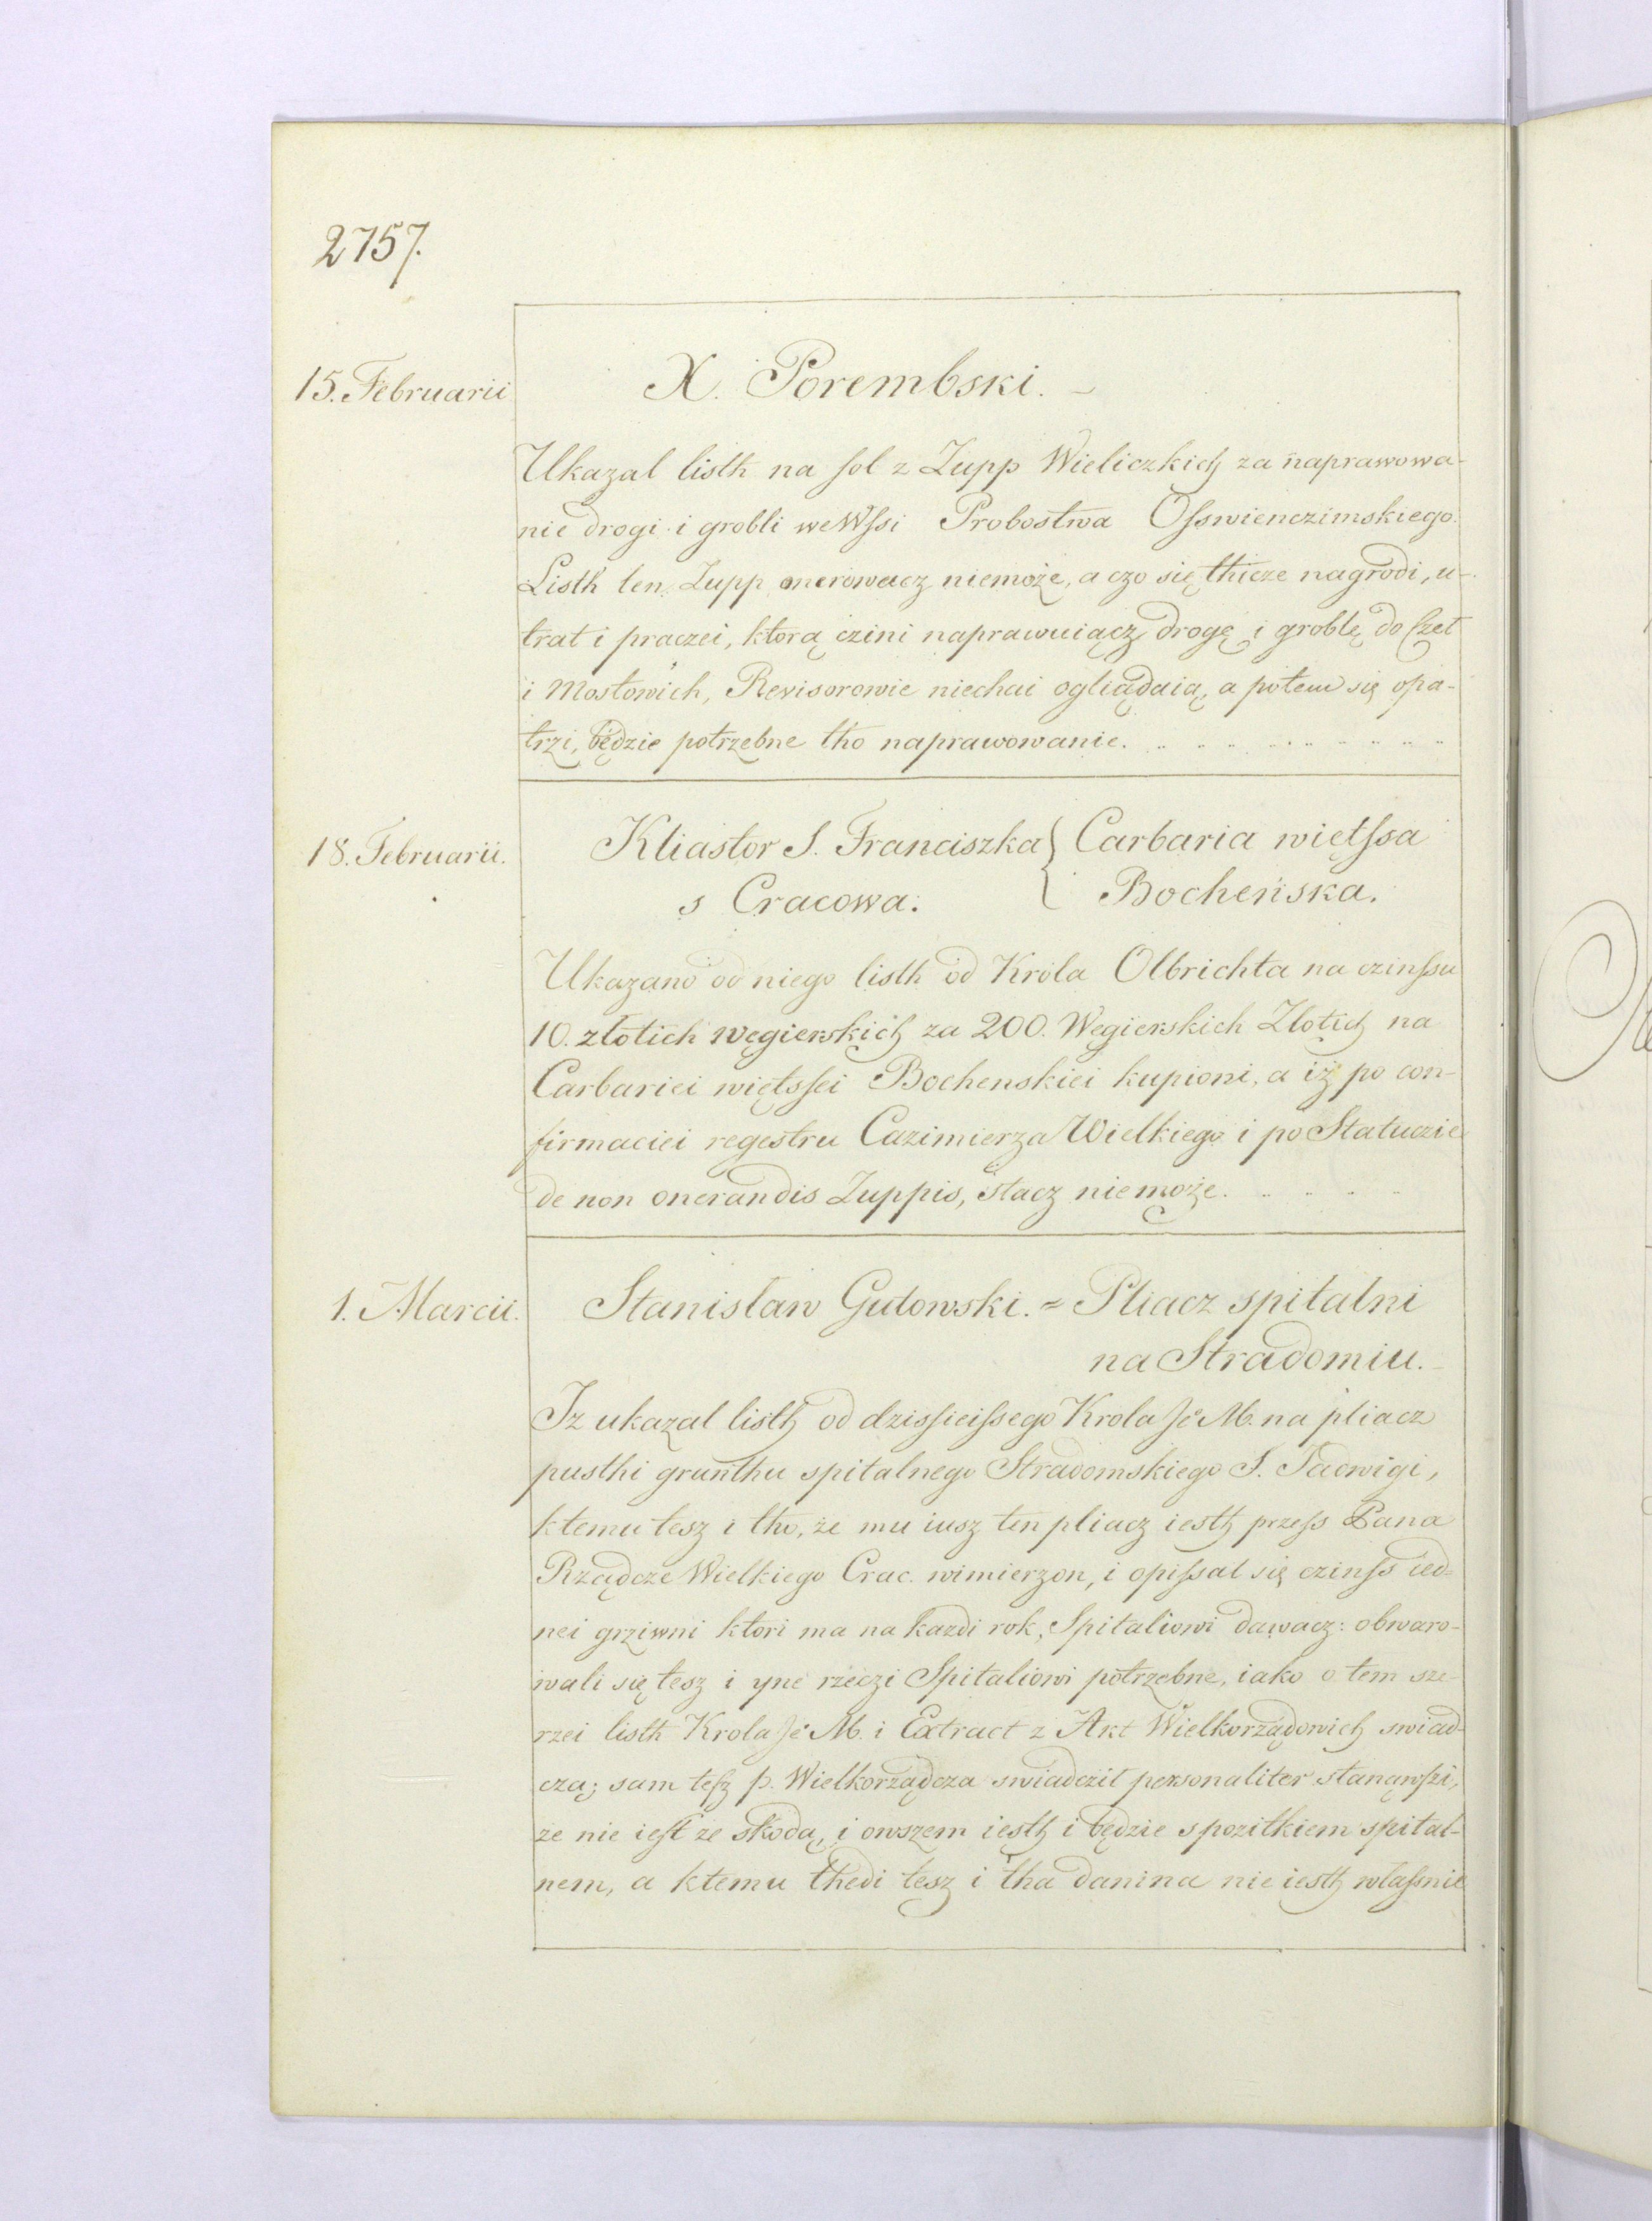 2757.
15. Februarii
X. Porembski. –
Ukazal listh na sol z Zupp Wieliczkich za naprawowa-
nie drogi i grobli we Wssi Probostwa Osswienczimskiego.
Listh ten Zupp onerowacz niemoże, a czo się thicze nagrodi, u-
trat i praczei, ktorą czini naprawuiącz drogę i groblę do
i Mostowich, Revisorowie niechai oglądaią, a potem się opa-
trzi, będzie potrzebne tho naprawowanie. . . . . . . . . . .
18. Februarii.
Kliastor S. Franciszka { Carbaria więtssa
s Cracowa. { Bocheńska.
Ukazano od niego listh od Króla Olbrichta na czinssu
10. złotich węgierskich za 200. Węgierskich Złotich na
Carbariei więtssei Bochenskiei kupioni, a iż po con-
firmaciei regestru Cazimierza Wielkiego i po Statuczie
de non onerandis Zuppis, stacz niemoże. . . . . .
1. Marcii.
Stanisław Gutowski. = Pliacz spitalni
na Stradomiu. –
Iz ukazal listh od dzissieissego Krola Je M. na pliacz
pusthi grunthu spitalnego Stradomskiego S. Jadwigi,
ktemu tesz i tho, że mu iusz ten pliacz iesth przess Pana
Rządcze Wielkiego Crac. wimierzon, i opissal się czinss ied-
nei grziwni ktori ma na kazdi rok, Spitaliowi dawacz: obwaro-
wali się tesz i yne rzeczi Spitaliowi potrzebne, iako o tem sze-
rzei listh Krola Je M. i Extract z Akt Wielkorządowich swiad-
cza; sam tesz p. Wielkorządcza swiadczil personaliter stanąwszi,
ze nie iest ze skodą, i owszem iesth i będzie s pozitkiem spital-
nem, a ktemu thedi tesz i tha danina nie iesth własnie